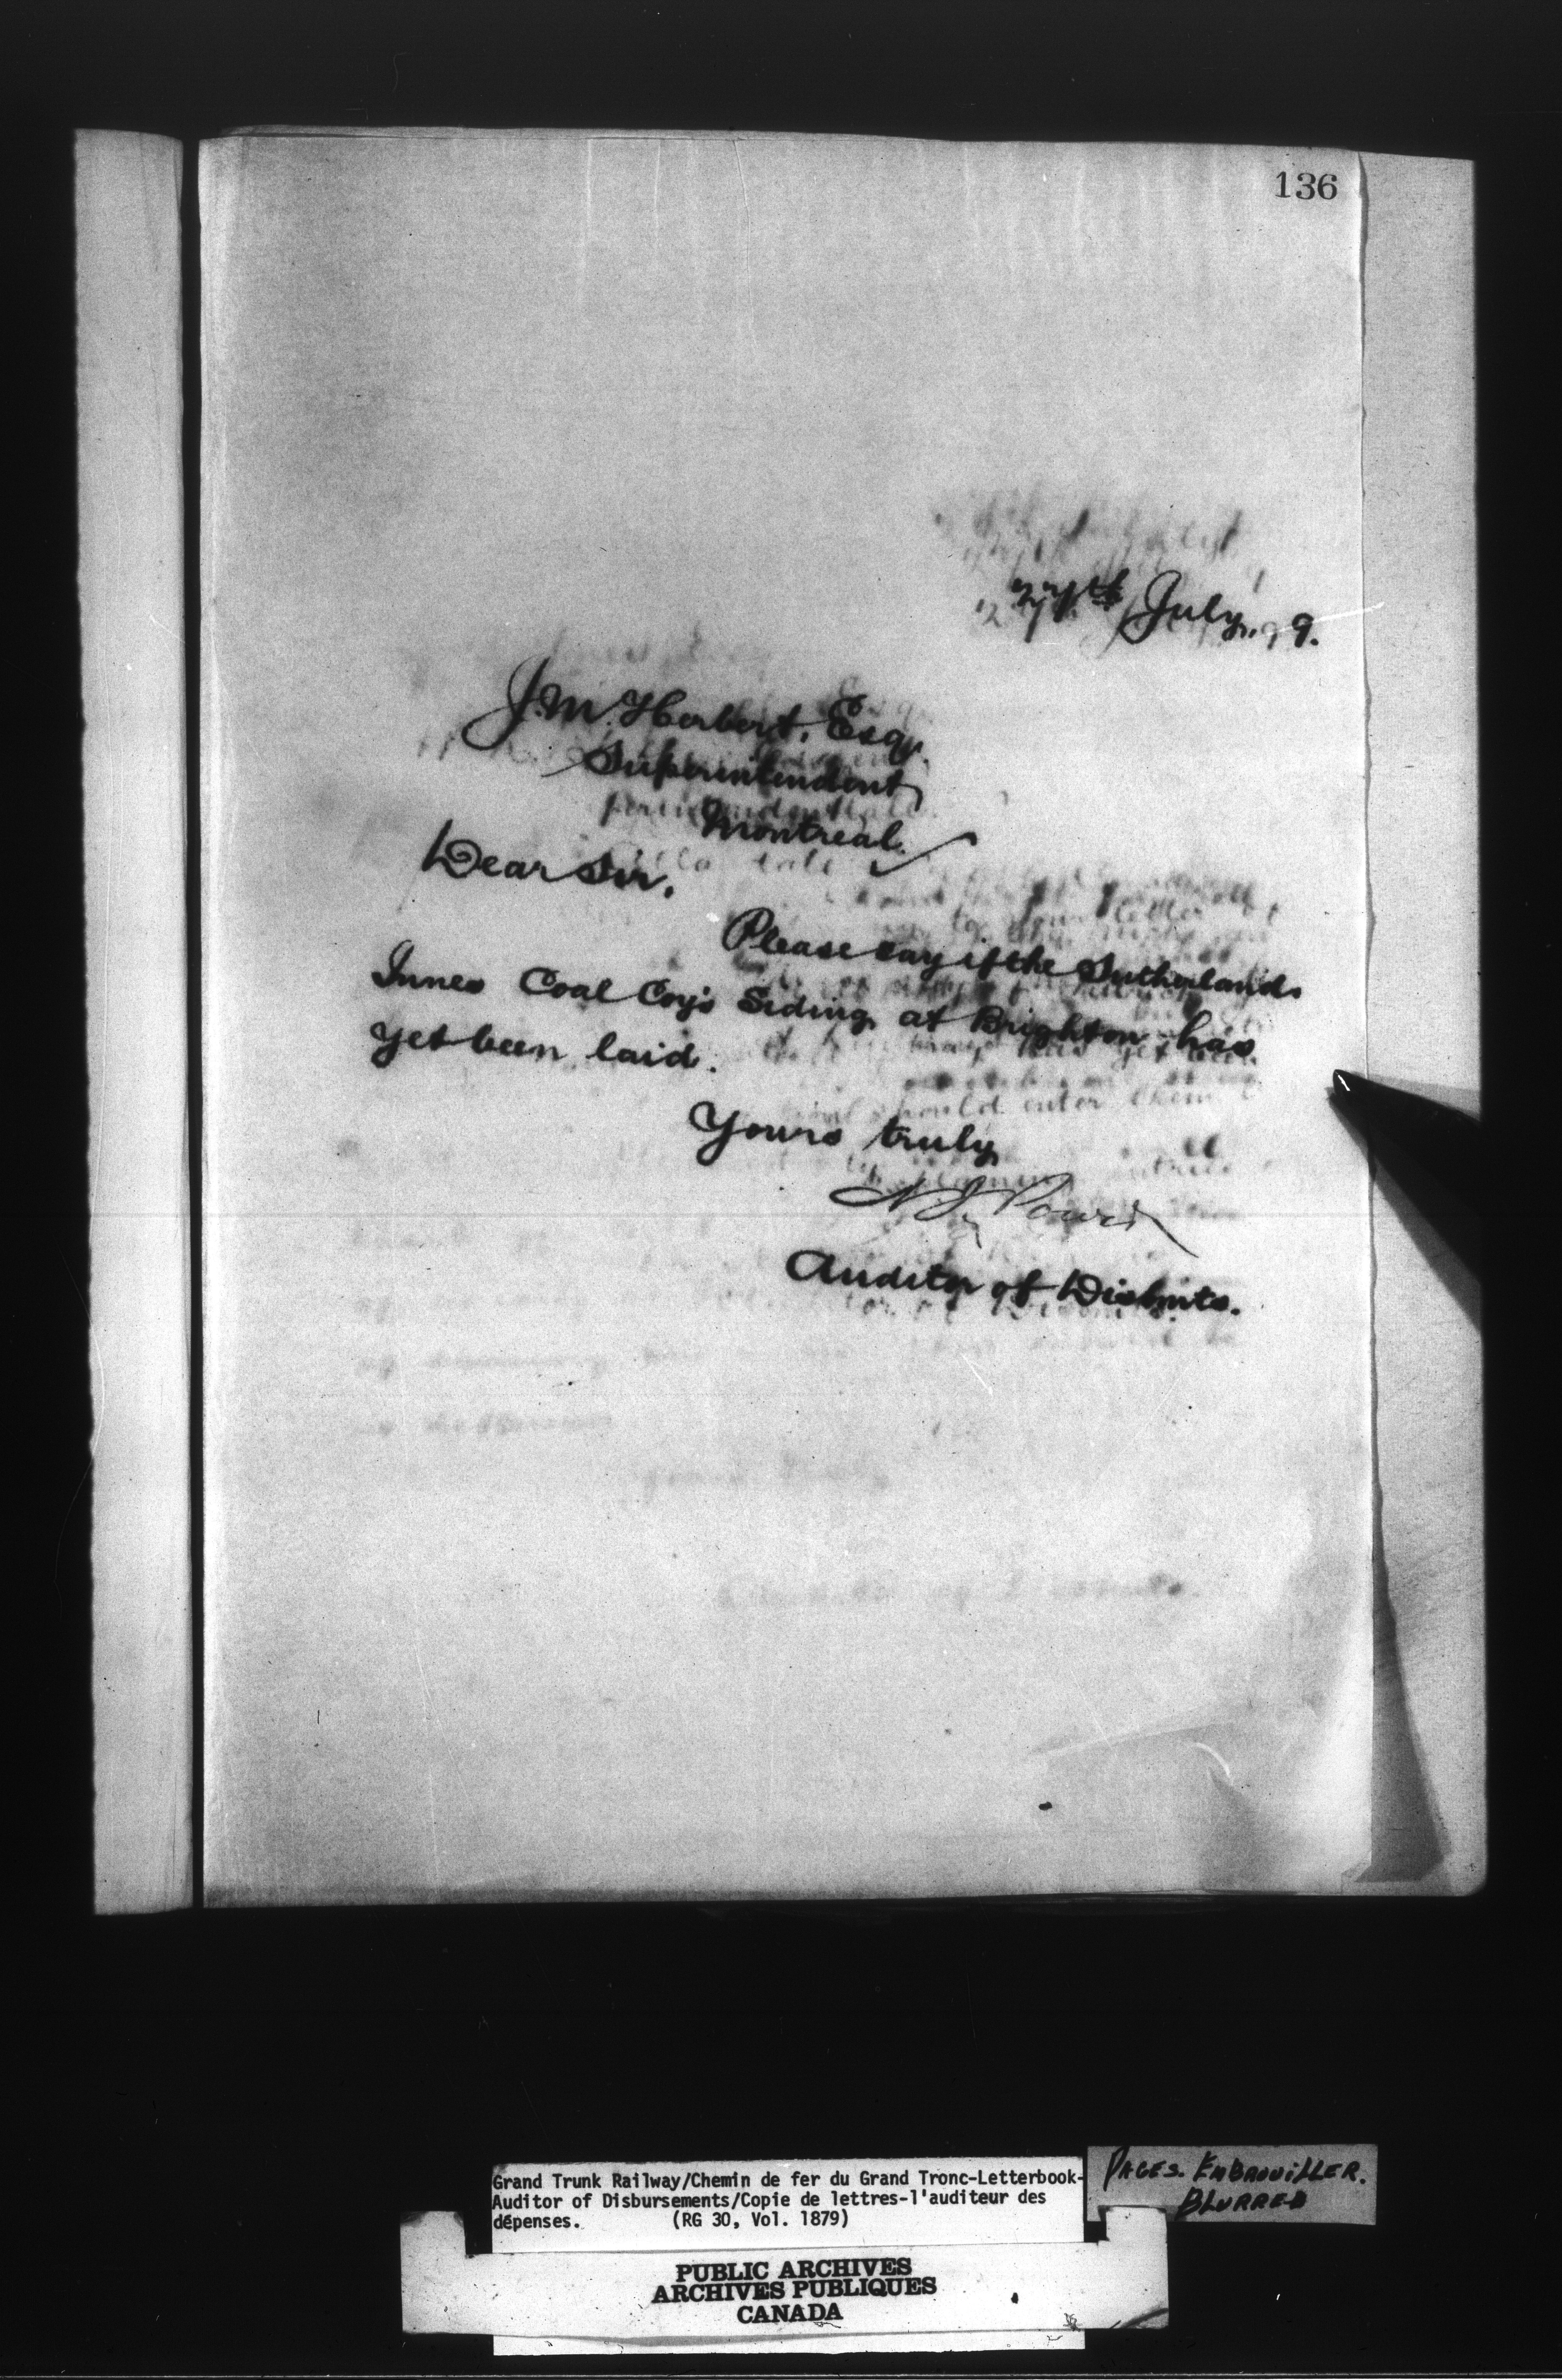 136
27th July, 99.
J.M. Herbert, Esq.
Superintendent
Montreal.
Dear Sir,
Please say if the Sutherland
Innes Coal Coy's Siding at Brighton has
yet been laid.
Yours truly
N.J. Power
Auditor of Disbmts.
Grand Trunk Railway/Chemin de fer du Grand Tronc-Letterbook-
Auditor of Disbursements/Copie de lettres-l'auditeur des
dépenses. (RG 30, Vol. 1879)
PAGES. EMBROUILLER.
BLURRED
PUBLIC ARCHIVES
ARCHIVES PUBLIQUES
CANADA